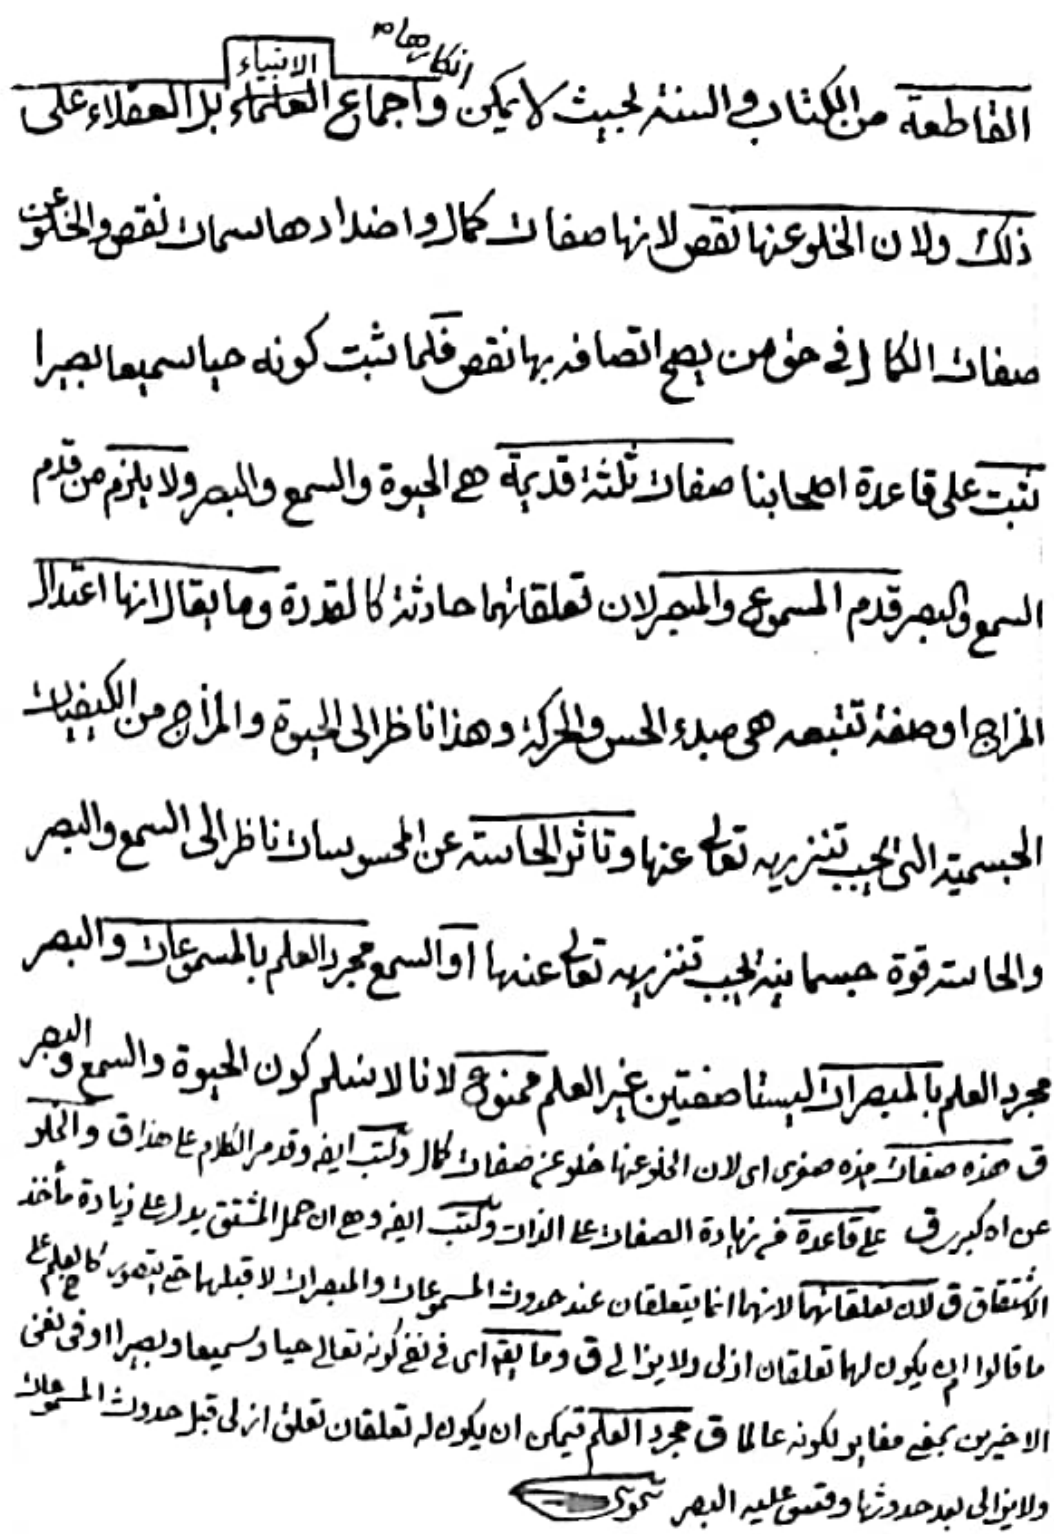 انكارها م
الانبياء
القاطعة من الكتاب والسنة بحيث لا يمكن واجماع العلماء بل العقلاء على
ذلك ولان الخلو عنها نقص لانها صفات كمال واضدادها سمات نقص والخلو عن
صفات الكمال في حق من يصح اتصافه بها نقص فكما ثبت كونه حيا سميعا بصيرا
ثبت على قاعدة اصحابنا صفات ثلثة قديمة هي الحيوة والسمع والبصر ولا يلزم من قدم
السمع والبصر قدم المسموع والمبصر لان تعلقاتهما حادثة كالقدرة وما يقال انها اعتدال
المزاج او صفة تتبعه هي مبدء الحس والحركة وهذا ناظر الى الحيوة والمزاج من الكيفيات
الجسمية التي يجب تنزيهه تعالى عنها وتاثر الحاسة عن المحسوسات ناظر الى السمع والبصر
والحاسة قوة جسمانية يجب تنزيهه تعالى عنها او السمع مجرد العلم بالمسموعات والبصر
مجرد العلم بالمبصرات ليستا صفتين غير العلم ممنوع لانا لا نسلم كون الحيوة والسمع والبصر
ق هذه صفات هذه صغرى اى لان الخلو عنها خلو عن صفات كمال وكتب ايضه وقد مر الكلام على هذا ق والخلو
عن اه كبرى ق على قاعدة في زيادة الصفات على الذات وكتب ايضه وهي ان حمل المشتق يدل على زيادة مأخذ
الاشتقاق ق لان تعلقاتهما لانهما انما يتعلقان عند حدوث المسموعات والمبصرات لا قبلهما حتى يتصور كالعلم على
ما قالوا ان يكون لهما تعلقان ازلى ولا يزالي ق وما يقه اى في نفي كونه تعالى حيا وسميعا وبصيرا او في نفي
الاخيرين بمعنى مغاير لكونه عالما ق مجرد العلم فيمكن ان يكون له تعلقان تعلق ازلى قبل حدوث المسموعات
ولا يزالى بعد حدوثها وقس عليه البصر